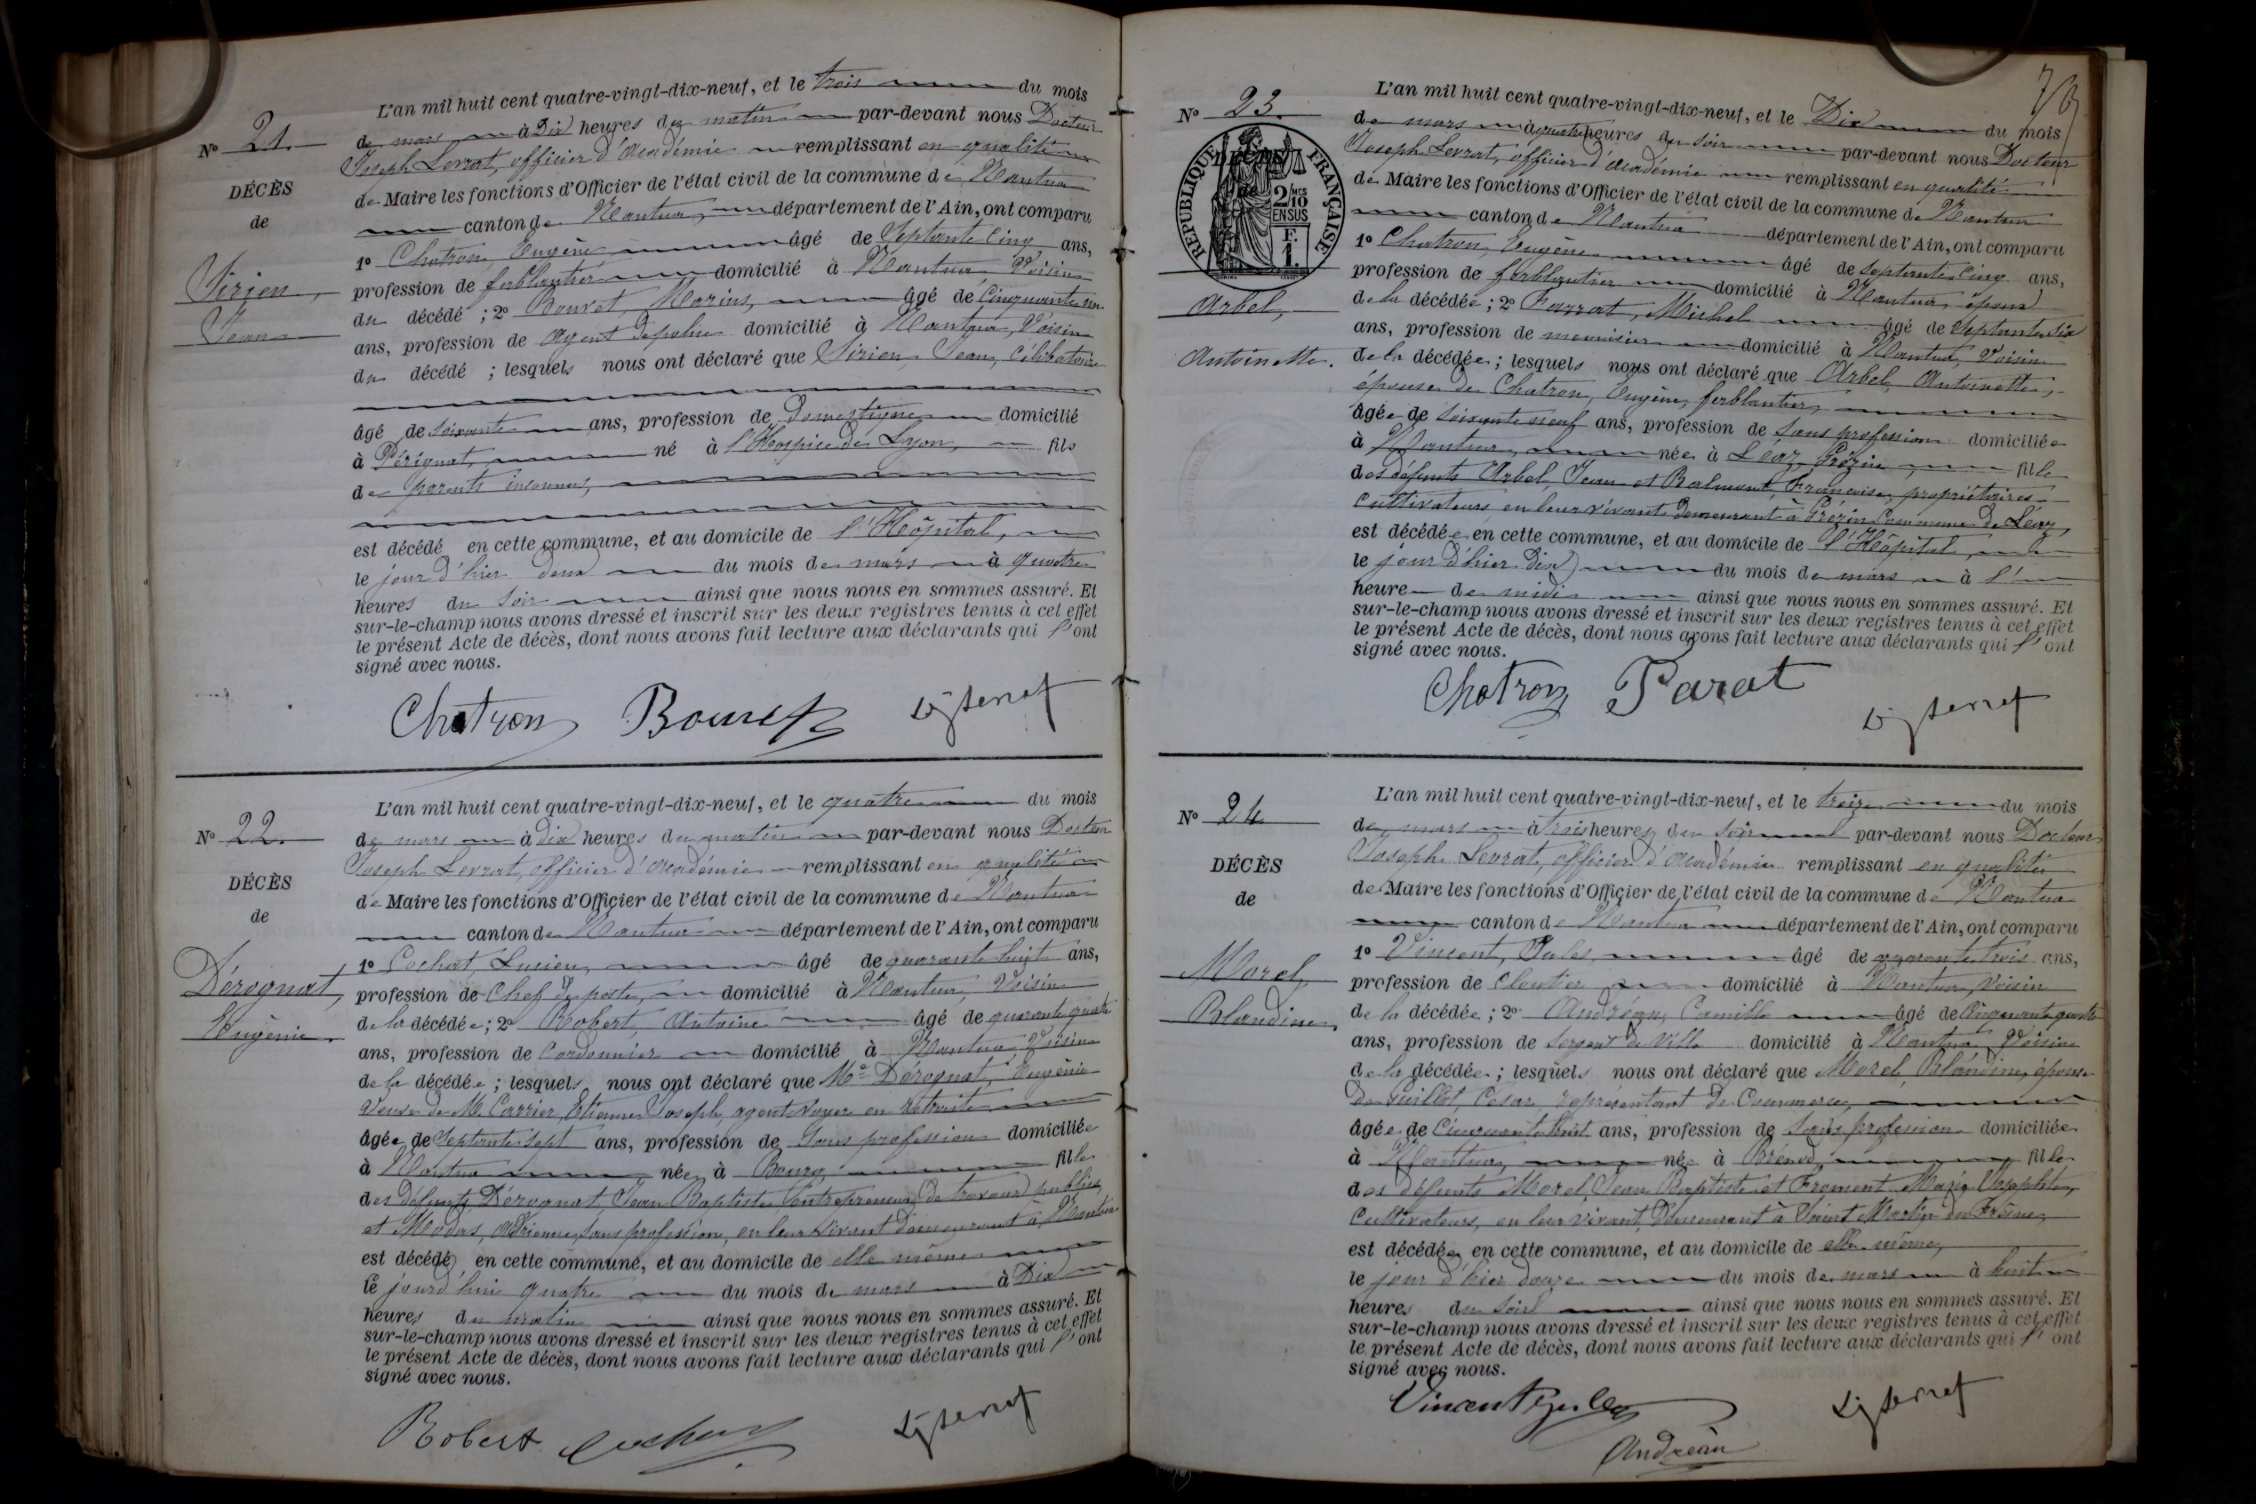 L'an mil huit cent quatre-vingt-dix-neuf, et le trois du mois
de mars à Dix heures du matin par-devant nous Docteur
Joseph Levrat, officier d'académie remplissant en qualité
de Maire les fonctions d'Officier de l'état civil de la commune de Nantua
canton de Nantua, département de l'Ain, ont comparu
1º Chatron, Eugène âgé de Septante Cinq ans,
profession de ferblantier domicilié à Nantua, Voisin
du décédé ; 2º Bouvet, Marius, âgé de Cinquante
ans, profession de agent de police domicilié à Nantua, Voisin
du décédé ; lesquels nous ont déclaré que Sirien, Jean, Célibataire
âgé de soixante ans, profession de Domestique domicilié
à Pérignat, né à l'Hospice de Lyon, fils
de parents inconnus,
est décédé en cette commune, et au domicile de l'Hôpital,
le jour d'hier deux du mois de mars à quatre
heures du soir ainsi que nous nous en sommes assuré. Et
sur-le-champ nous avons dressé et inscrit sur les deux registres tenus à cet effet
le présent Acte de décès, dont nous avons fait lecture aux déclarants qui l'ont
signé avec nous.
Nº 21.
DÉCÈS
de
Sirien,
Jean
Chatron Bouvet
L'an mil huit cent quatre-vingt-dix-neuf, et le quatre du mois
de mars à dix heures du matin par-devant nous Docteur
Joseph Levrat, officier d'académie remplissant en qualité
de Maire les fonctions d'Officier de l'état civil de la commune de Nantua
canton de Nantua département de l'Ain, ont comparu
1º Cochat, Lucien, âgé de quarante huit ans,
profession de Chef de poste, domicilié à Nantua, Voisin
de la décédée ; 2º Robert, Antoine âgé de quarante quatre
ans, profession de Cordonnier domicilié à Nantua Voisin
de la décédée ; lesquels nous ont déclaré que Me Dérognat, Eugénie
Veuve de M. Carrier, Etienne Joseph, agent Voyer en retraite
âgée de Septante sept ans, profession de Sans profession domiciliée
à Nantua née à Bourg fille
des défunts Dérognat, Jean Baptiste, entrepreneur de travaux publics,
et Modas, sans profession, en leur vivant demeurant à Nantua
est décédé en cette commune, et au domicile de elle même
le jourd'hui quatre du mois de mars à Dix
heures du matin ainsi que nous nous en sommes assuré. Et
sur-le-champ nous avons dressé et inscrit sur les deux registres tenus à cet effet
le présent Acte de décès, dont nous avons fait lecture aux déclarants qui l'ont
signé avec nous.
Nº 22.
DÉCÈS
de
Dérognat,
Eugénie.
Robert Cochat
76
L'an mil huit cent quatre-vingt-dix-neuf, et le Dix du mois
de mars à quatre heures du soir par-devant nous Docteur
Joseph Levrat, officier d'académie remplissant en qualité
de Maire les fonctions d'Officier de l'état civil de la commune de Nantua
canton de Nantua département de l'Ain, ont comparu
1º Chatron, Eugène âgé de septante cinq ans,
profession de ferblantier domicilié à Nantua, époux
de la décédée ; 2º Parrat, Michel âgé de Septante six
ans, profession de menuisier domicilié à Nantua, Voisin
de la décédée ; lesquels nous ont déclaré que Arbel, Antoinette,
épouse de Chatron, Eugène, ferblantier,
âgée de soixante neuf ans, profession de Sans profession domiciliée
à Nantua, née à Léaz, Grézin, fille
des défunts Arbel, Jean et Balmont, Françoise, propriétaires
Cultivateurs, en leur vivant demeurant à Grézin Commune de Léaz,
est décédée en cette commune, et au domicile de l'Hôpital,
le jour d'hier Dix du mois de mars à l'
heure de midi ainsi que nous nous en sommes assuré. Et
sur-le-champ nous avons dressé et inscrit sur les deux registres tenus à cet effet
le présent Acte de décès, dont nous avons fait lecture aux déclarants qui l'ont
signé avec nous.
Nº 23.
RÉPUBLIQUE FRANÇAISE
DÉCÈS
de
2/10 MES
EN SUS
F.
1.
Arbel,
Antoinette.
Chatron Parat
L'an mil huit cent quatre-vingt-dix-neuf, et le treize du mois
de mars à trois heures du soir par-devant nous Docteur
Joseph Levrat, officier d'académie remplissant en qualité
de Maire les fonctions d'Officier de l'état civil de la commune de Nantua
canton de Nantua département de l'Ain, ont comparu
1º Vincent, Jules âgé de quarante trois ans,
profession de Cloutier domicilié à Nantua, Voisin
de la décédée ; 2º Andréan, Camille âgé de Cinquante quatre
ans, profession de Sergent de Ville domicilié à Nantua Voisin
de la décédée ; lesquels nous ont déclaré que Morel, Blandine, épouse
de Guillot, César, représentant de Commerce,
âgée de Cinquante huit ans, profession de Sans profession domiciliée
à Nantua, née à Brénod, fille
des défunts Morel, Jean Baptiste et Froment, Marie
Cultivateurs, en leur vivant Demeurant à Saint Martin du Frêne,
est décédée en cette commune, et au domicile de elle même,
le jour d'hier douze du mois de mars à huit
heures du soir ainsi que nous nous en sommes assuré. Et
sur-le-champ nous avons dressé et inscrit sur les deux registres tenus à cet effet
le présent Acte de décès, dont nous avons fait lecture aux déclarants qui l'ont
signé avec nous.
Nº 24
DÉCÈS
de
Morel,
Blandine,
Vincent Jules
Andréan